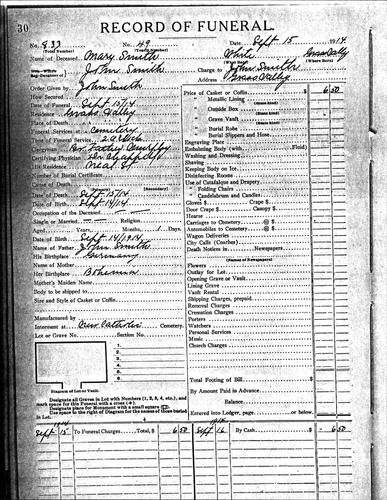 30
RECORD OF FUNERAL.
No. 833 No. 49 Date, Sept 15 1914
(Total Number) (Yearly Number)
Name of Deceased Mary Smith White Grass Valley
(What Race) (Where Born)
John Smith Charge to John Smith
Address Grass Valley
Order Given by John Smith
How Secured
Date of Funeral Sept 15/14
Residence Grass Valley
Place of Death
Funeral Services at Cemetery
Time of Funeral Service, 2 o'clock
Clergyman Rev Father
Certifying Physician Dr
His Residence Neal St
Number of Burial Certificate
Cause of Death
(Secondary)
Date of Death Sept 15/14
Date of Birth Sept 14/14
Occupation of the Deceased
Single or Married Religion
Aged, Years, Months, 1 Days.
Date of Birth Sept 14/1914
Name of Father John Smith
His Birthplace Germany
Name of Mother
Her Birthplace Bohemia
Mother's Maiden Name
Body to be shipped to
Size and Style of Casket or Coffin
Manufactured by
Interment at Catholic Cemetery.
Lot or Grave No. Section No.
1.
2.
3.
4.
5.
Diagram of Lot or Vault.
Designate all Graves in Lot with Numbers (1, 2, 3, 4, etc.), and
mark space for this Funeral with a cross (+).
Designate place for Monument with a small square
Use space to the right of Diagram for the names of those buried
in Lot.
Price of Casket or Coffin $ 6 50
" Metallic Lining
(State Kind)
" Outside Box
(State Kind)
" Grave Vault
(State Kind)
" Burial Robe
" Burial Slippers and Hose
Engraving Plate
Embalming Body (with Fluid)
Washing and Dressing
Shaving
Keeping Body on Ice
Disinfecting Rooms
Use of Catafalque and Drapery
" Folding Chairs
" Candelabrum and Candles
Gloves $ Crape $
Door Crape $ Canopy $
Hearse
Carriages to Cemetery @ $
Automobiles to Cemetery @ $
Wagon Deliveries
City Calls (Coaches)
Death Notices in Newspapers
(Names of Newspapers)
Flowers
Outlay for Lot
Opening Grave or Vault
Lining Grave
Vault Rental
Shipping Charges, prepaid
Removal Charges
Cremation Charges
Porters
Watchers
Personal Services
Music
Church Charges
Total Footing of Bill $
By Amount Paid in Advance
Balance
Entered into Ledger, page or below.
1914 1914
Sept 15 To Funeral Charges Total, $ 6 50 Sept 16 By Cash $ 6 50